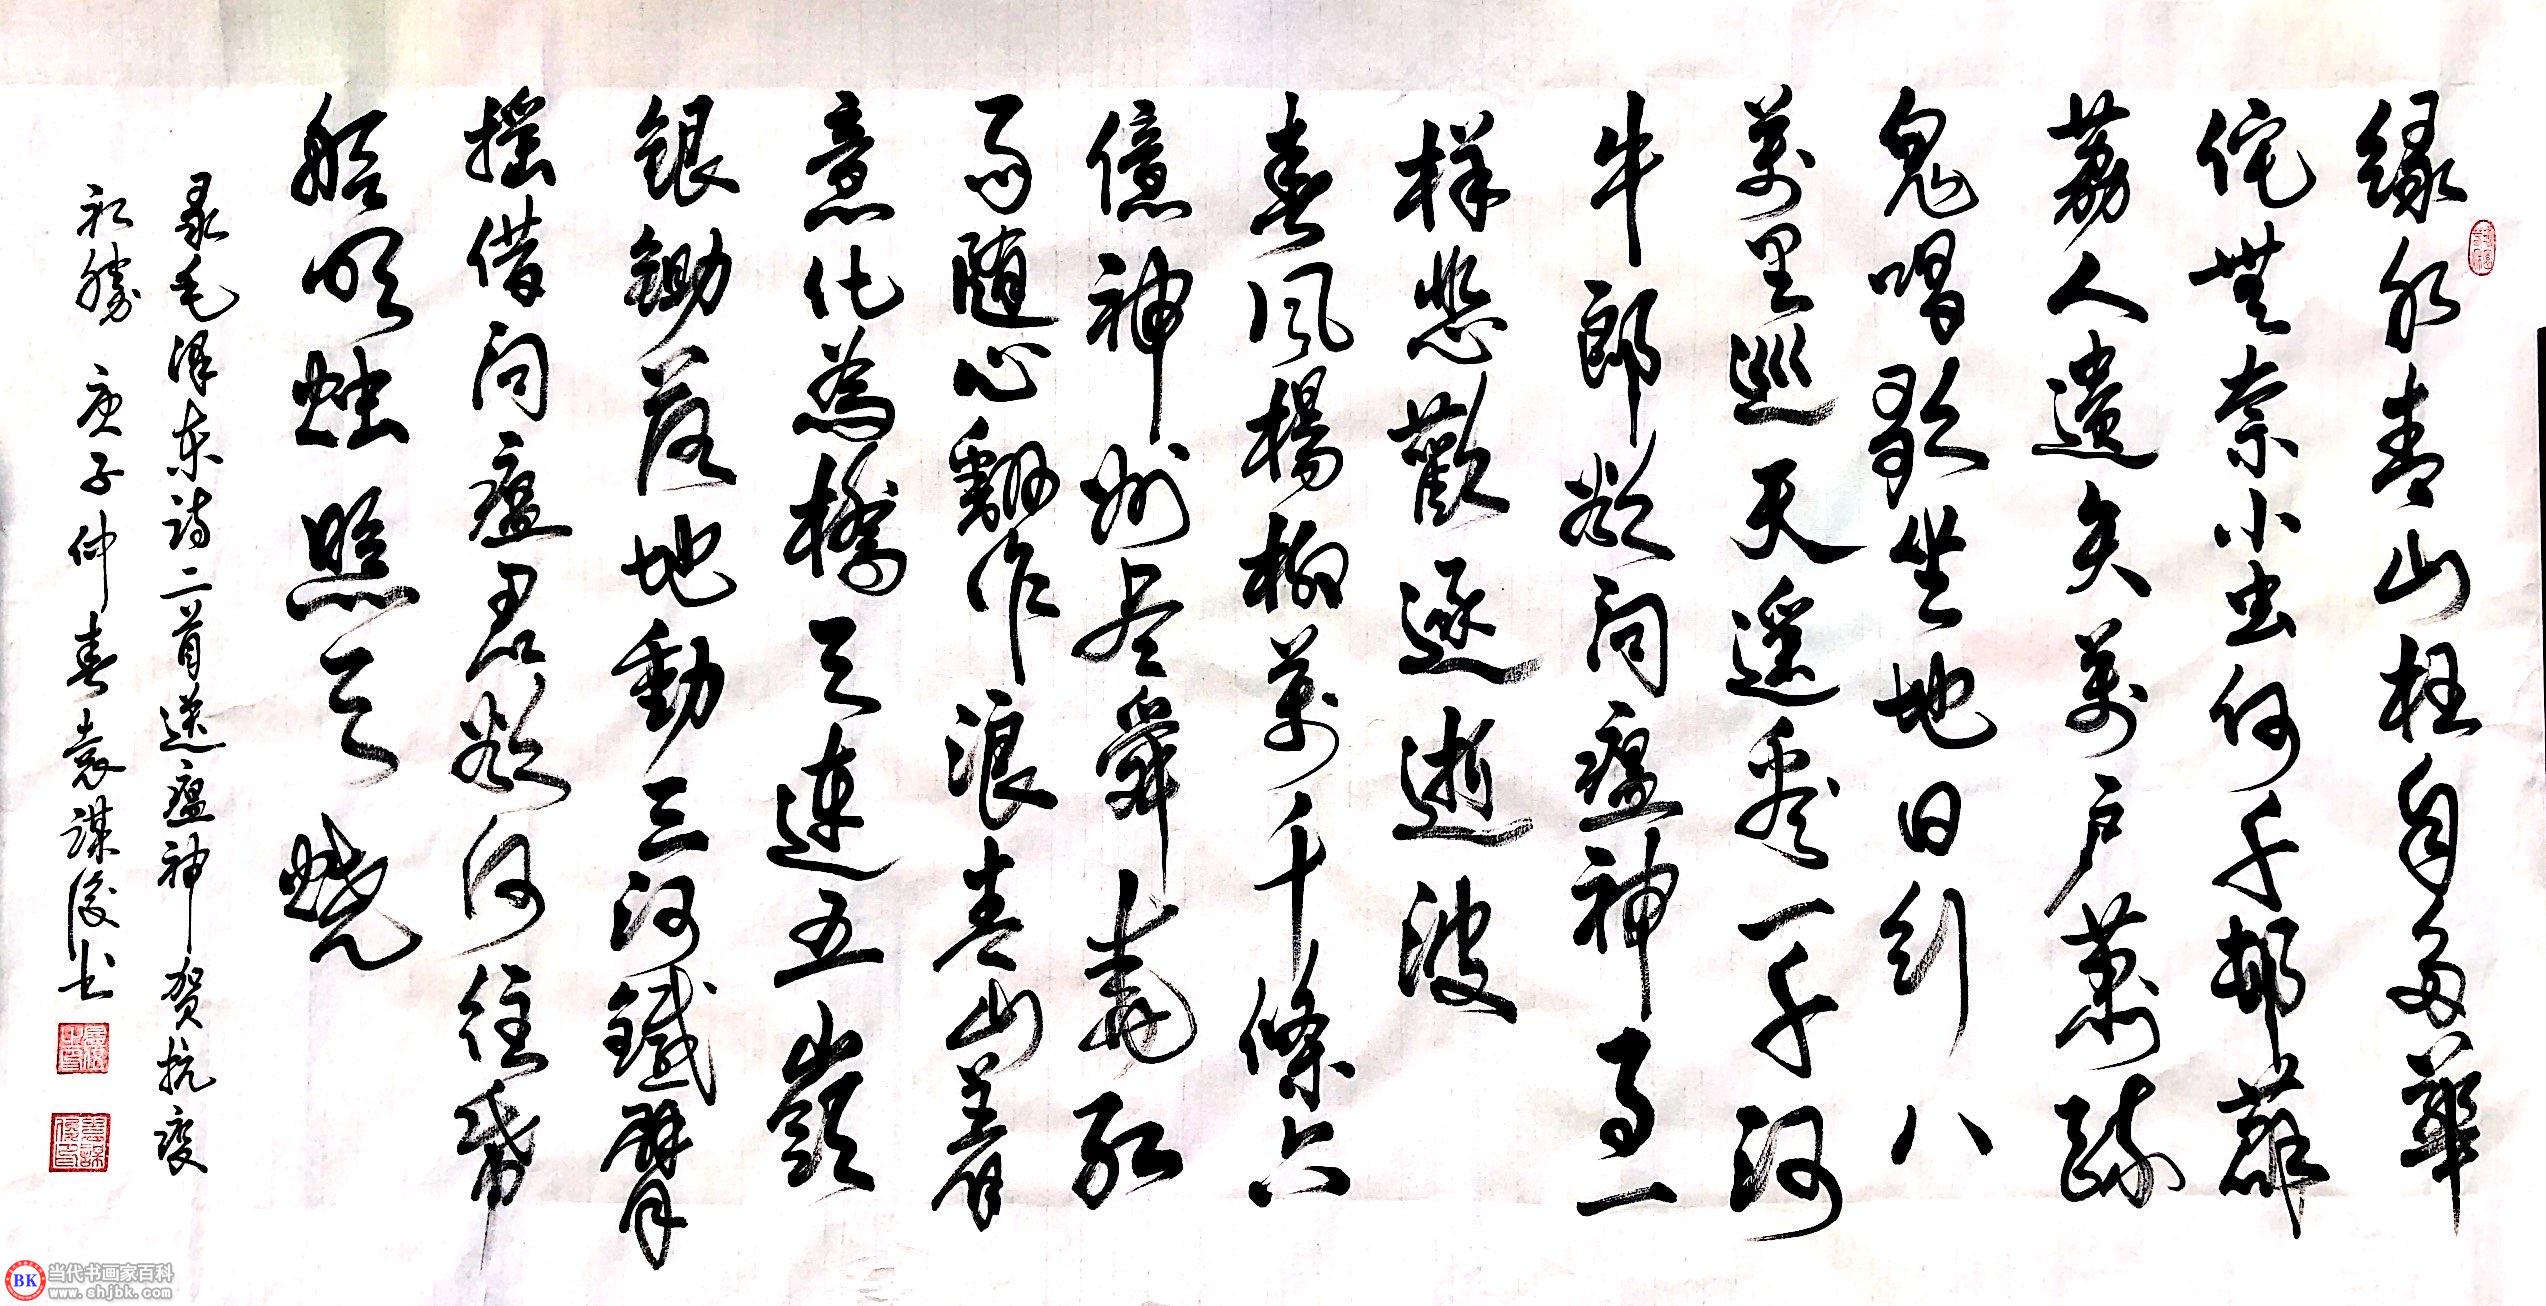 緑水青山枉自多華
佗無奈小虫何千邨薜
荔人遺矢萬户蕭疏
鬼唱歌坐地日行八
萬里巡天遥看一千河
牛郎欲问瘟神事一
样悲歡逐逝波
春风楊柳萬千條六
億神州尽舜尭红
雨随心翻作浪青山着
意化為橋天连五嶺
銀鋤落地動三河鐵臂
摇借问瘟君欲何往帋
船明烛照天烧
录毛泽东诗二首送瘟神 贺抗疫
初勝 庚子仲春袁謀俊书
当代书画家百科
www.shjbk.com
BK